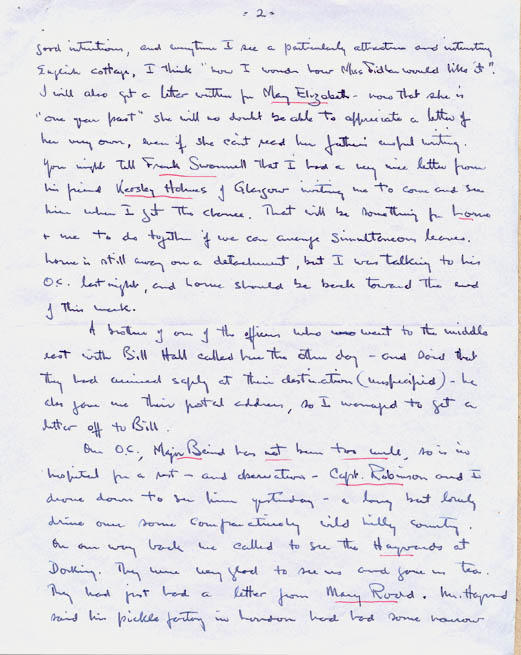 - 2 -
good intentions, and anytime I see a particularly attractive and interesting
English cottage, I think "now I wonder how Miss Fidler would like it".
I will also get a letter written for Mary Elizabeth - now that she is
"one year past" she will no doubt be able to appreciate a letter of
her very own, even if she can't read her father's awful writing.
You might tell Frank Swannell that I had a very nice letter from
his friend Kersley Holmes of Glasgow inviting me to come and see
him when I get the chance. That will be something for Lorne
+ me to do together if we can arrange simultaneous leaves.
Lorne is still away on a detachment, but I was talking to his
O.C. last night, and Lorne should be back toward the end
of this week.
A brother of one of the officers who went to the middle
east with Bill Hall called here the other day - and said that
they had arrived safely at their destination (unspecified) - he
also gave me their postal address, so I managed to get a
letter off to Bill.
Our O.C., Major Baird has not been too well, so is in
hospital for a rest - and observation - Capt. Robinson and I
drove down to see him yesterday - a long but lovely
drive over some comparatively wild hilly country.
On our way back we called to see the Haywards at
Dorking. They were very glad to see us and gave us tea.
They had just had a letter from Mary Rodd. Mr. Hayward
said his pickle factory in London had had some narrow